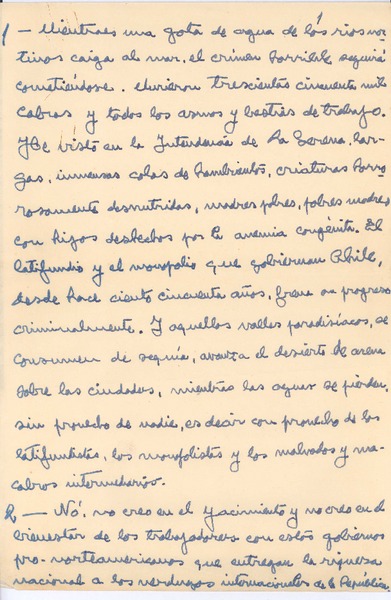 1 — Mientras una gota de agua de los ríos nor-
tinos caiga al mar, el crimen horrible seguirá
cometiéndose. Murieron trescientas cincuenta mil
cabras y todos los asnos y bestias de trabajo.
Y he visto en la Intendencia de La Serena, lar-
gas, inmensas colas de hambrientos, criaturas horro-
rosamente desnutridas, madres pobres, pobres madres,
con hijos deshechos por la anemia congénita. El
latifundio y el monopolio que gobiernan Chile,
desde hace ciento cincuenta años, frena su progreso
criminalmente. Y aquellos valles paradisíacos, se
consumen de sequía, avanza el desierto de arena
sobre las ciudades, mientras las aguas se pierden,
sin provecho de nadie, es decir con provecho de los
latifundistas, los monopolistas y los malvados y ma-
cabros intermediarios.
2 — No, no creo en el yacimiento y no creo en el
bienestar de los trabajadores con estos gobiernos
pro-norteamericanos que entregan la riqueza
nacional a los verdugos internacionales de la República